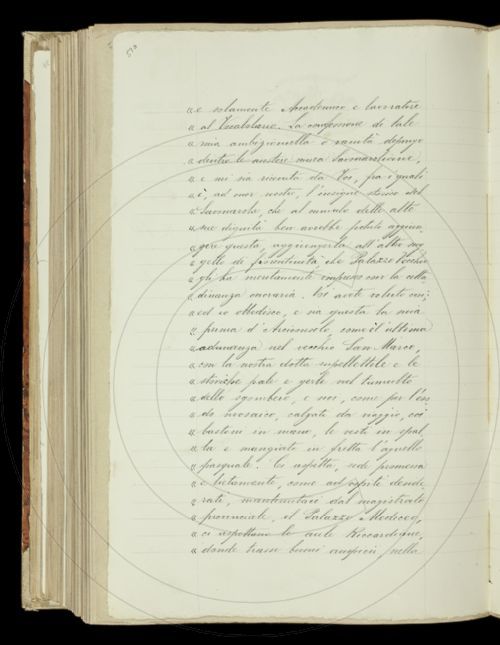 « e solamente Accademico e lavoratore
« al Vocabolario. La confessione di tale
« mia ambizioncella o vanità depongo
« dentro le austere mura Savonaroliane,
« e mi sia ricevuta da Voi, fra i quali
« è, ad onor nostro, l'insigne storico del
« Savonarola, che al cumulo delle altre
« sue dignità ben avrebbe potuto aggiun
« gere questa, aggiungerla all'altro sug
« gello di fiorentinità che Palazzo Vecchio
« gli ha meritamente impresso con la citta
« dinanza onoraria. Voi avete voluto così;
« ed io obbedisco, e sia questa la mia
« prima d'Arciconsolo, come è l'ultima
« adunanza nel vecchio San Marco,
« con la nostra dotta suppellettile e le
« storiche pale e gerle nel tumulto
« dello sgombero, e noi, come per l'eso
« do mosaico, calzati da viaggio, coi
« bastoni in mano, le veste in spal
« la e mangiato in fretta l'agnello
« pasquale. Ci aspetta, sede promessa
« e lietamente, come ad ospiti deside
« rati, mantenutaci dal magistrato
« provinciale, il Palazzo Mediceo,
« ci aspettano le aule Riccardiane,
« donde trassi buoni auspicii, nella